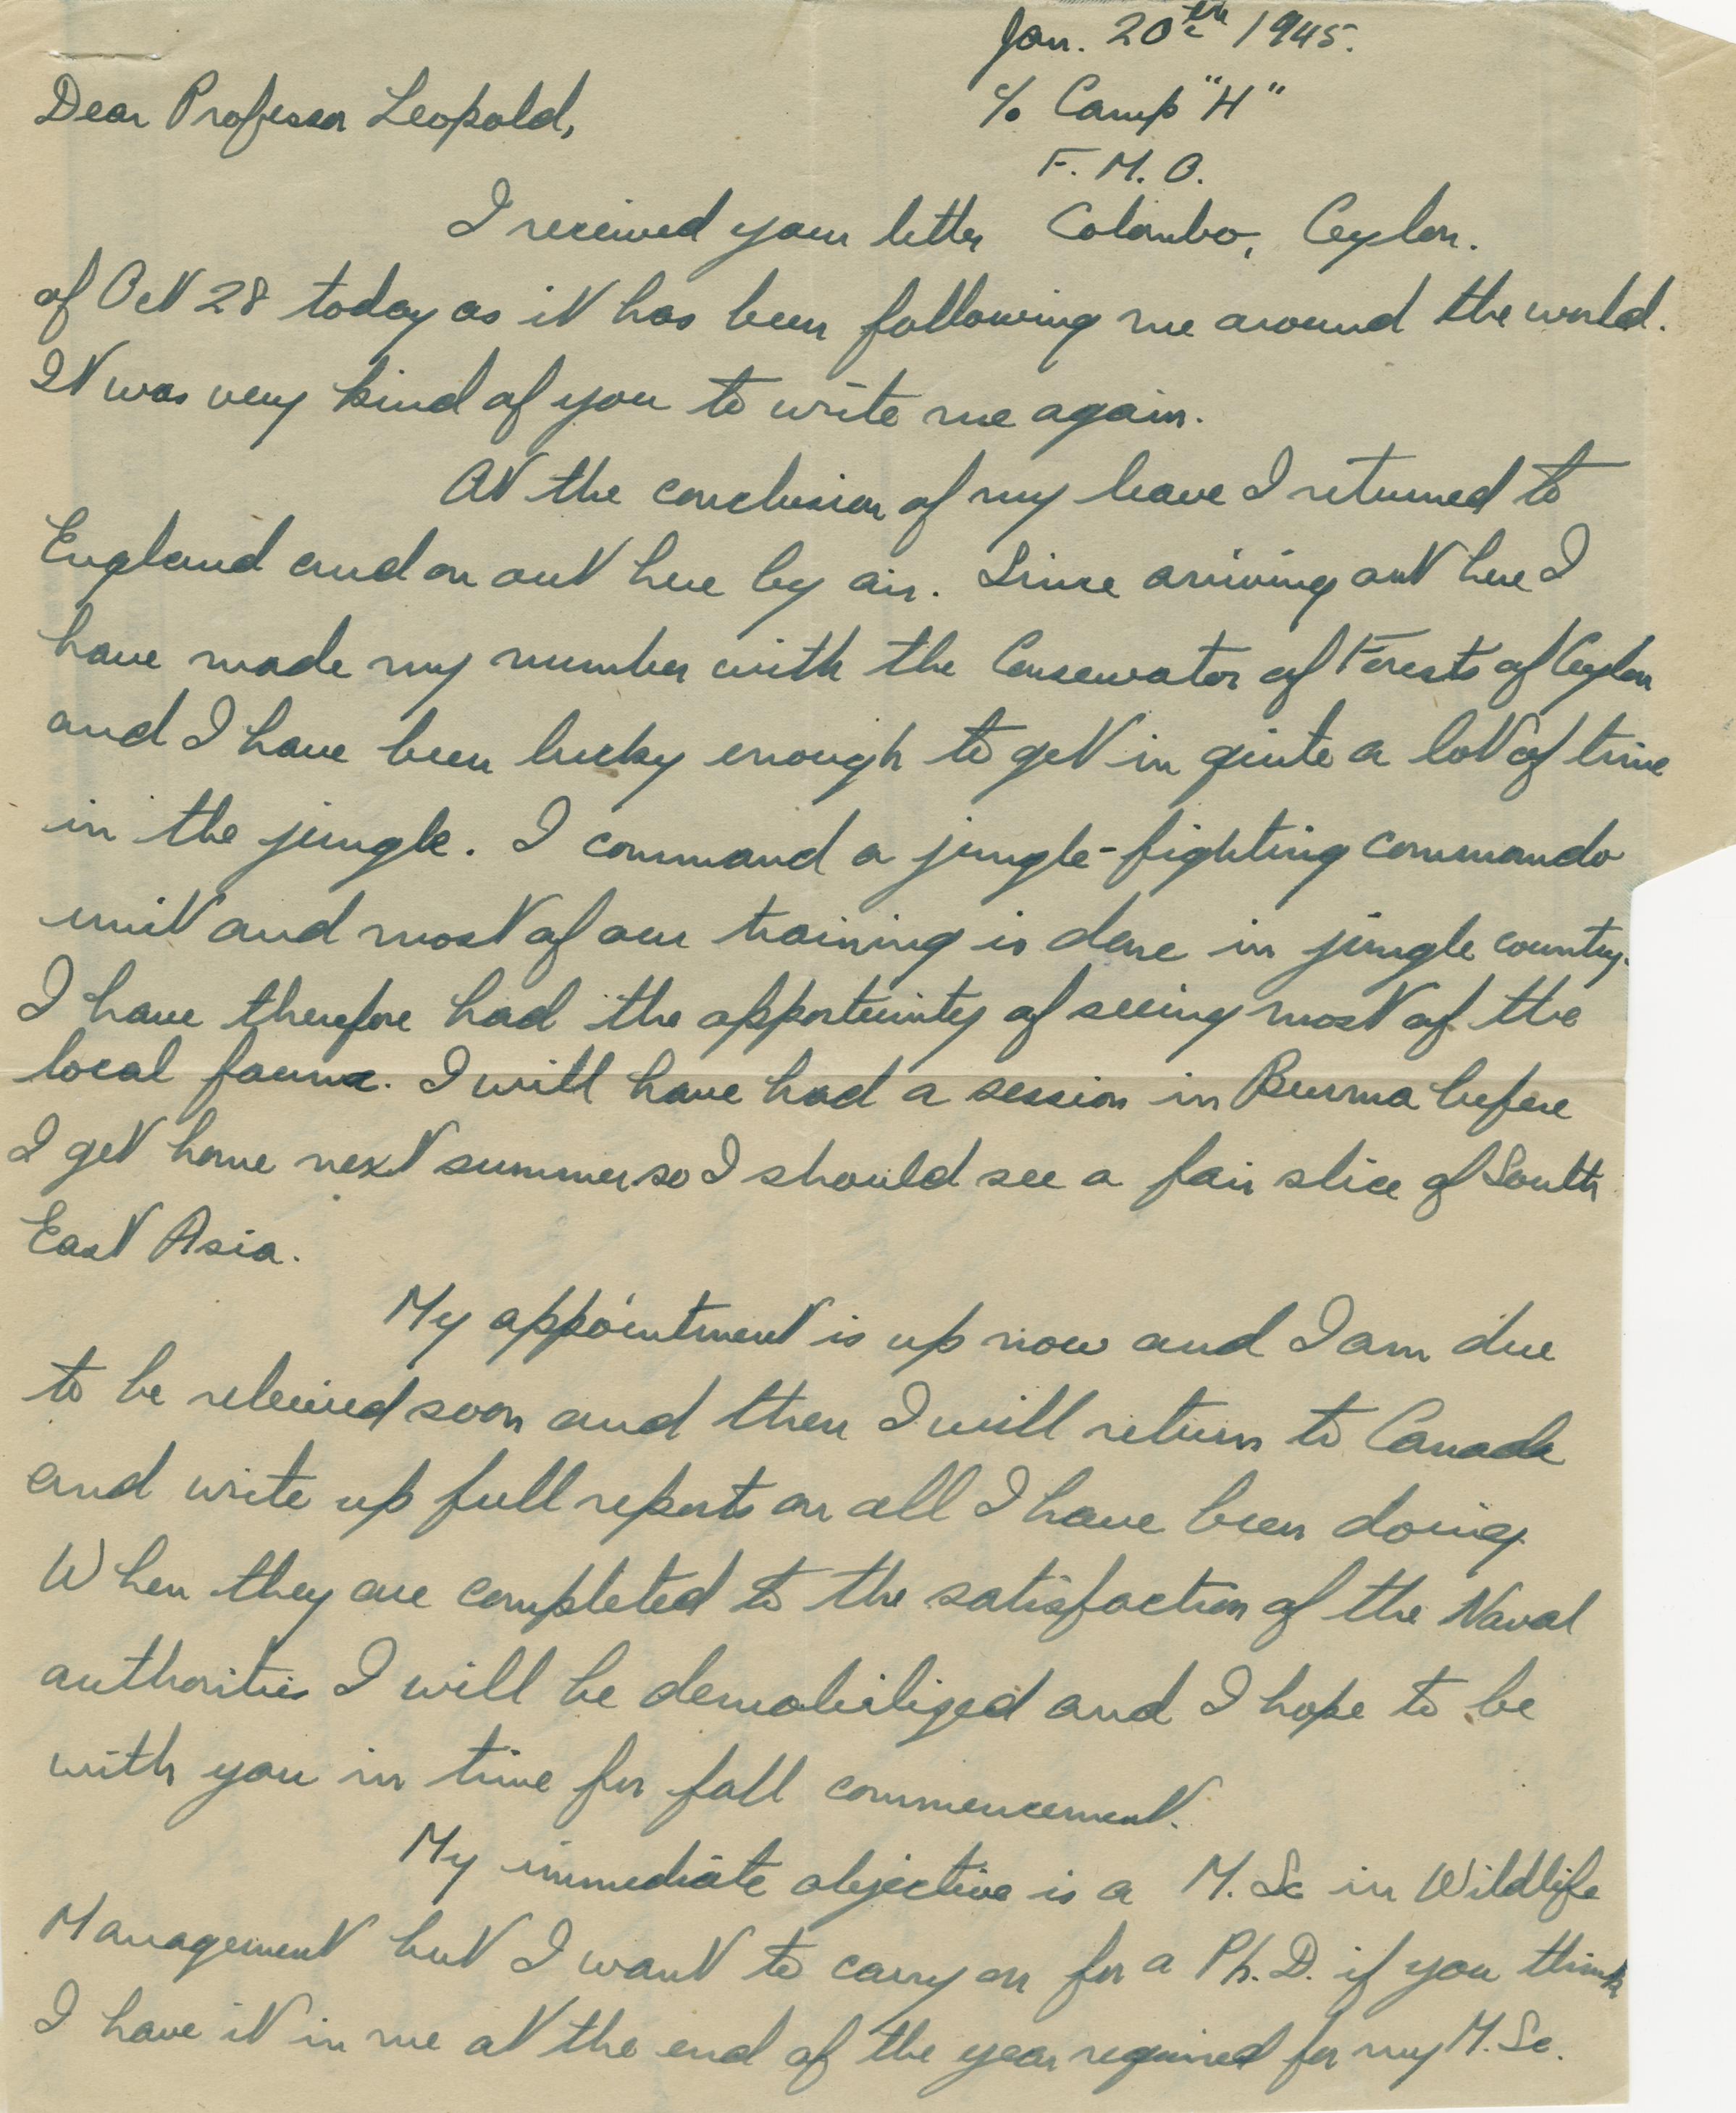 Jan. 20th 1945.
Dear Professor Leopold,
c/o Camp "H"
F. M. O.
I received your letter Colombo, Ceylon.
of Oct 28 today as it has been following me around the world.
It was very kind of you to write me again.
At the conclusion of my leave I returned to
England and on out here by air. Since arriving out here I
have made my number with the Conservator of Forests of Ceylon
and I have been lucky enough to get in quite a lot of time
in the jungle. I command a jungle-fighting commando
unit and most of our training is done in jungle country.
I have therefore had the opportunity of seeing most of the
local fauna. I will have had a session in Burma before
I get home next summer so I should see a fair slice of South
East Asia.
My appointment is up now and I am due
to be releived soon and then I will return to Canada
and write up full reports on all I have been doing.
When they are completed to the satisfaction of the Naval
authorities I will be demobilized and I hope to be
with you in time for fall commencement.
My immediate objective is a M. Sc in Wildlife
Management but I want to carry on for a Ph. D. if you think
I have it in me at the end of the year required for my M. Sc.